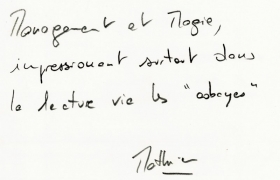 Management et Magie,
impressionant surtout dans
la lecture via les "cobayes"